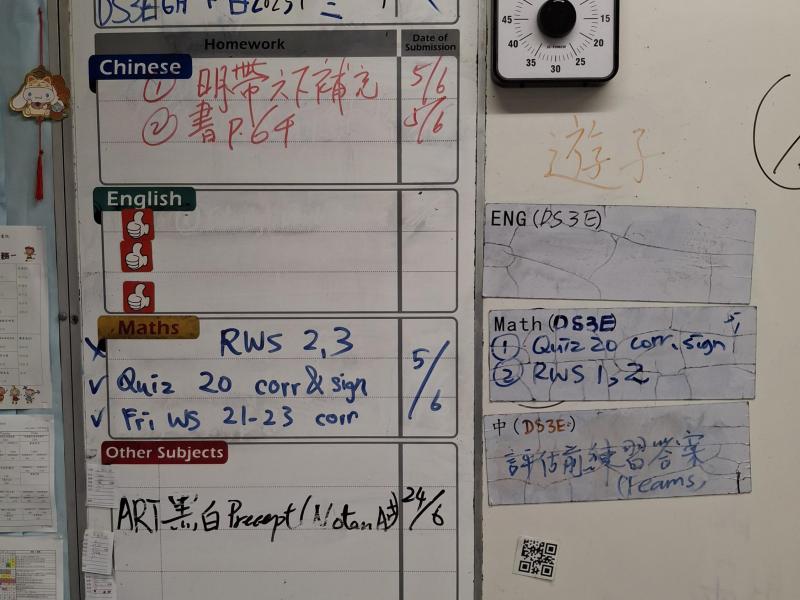 Homework
Date of Submission
Chinese
① 明帶六下補充 5/6
② 書 P.64 5/6
English
Maths
RWS 2,3
Quiz 20 corr & sign 5/6
Fri WS 21-23 corr
Other Subjects
ART 黑白 Precept (Notan Art) 24/6
45
40
35
30
25
20
15
遊子
ENG (DS3E)
Math (DS3E)
① Quiz 20 corr. sign
② RWS 1, 2
中 (DS3E)
評估前練習答案
(Teams)